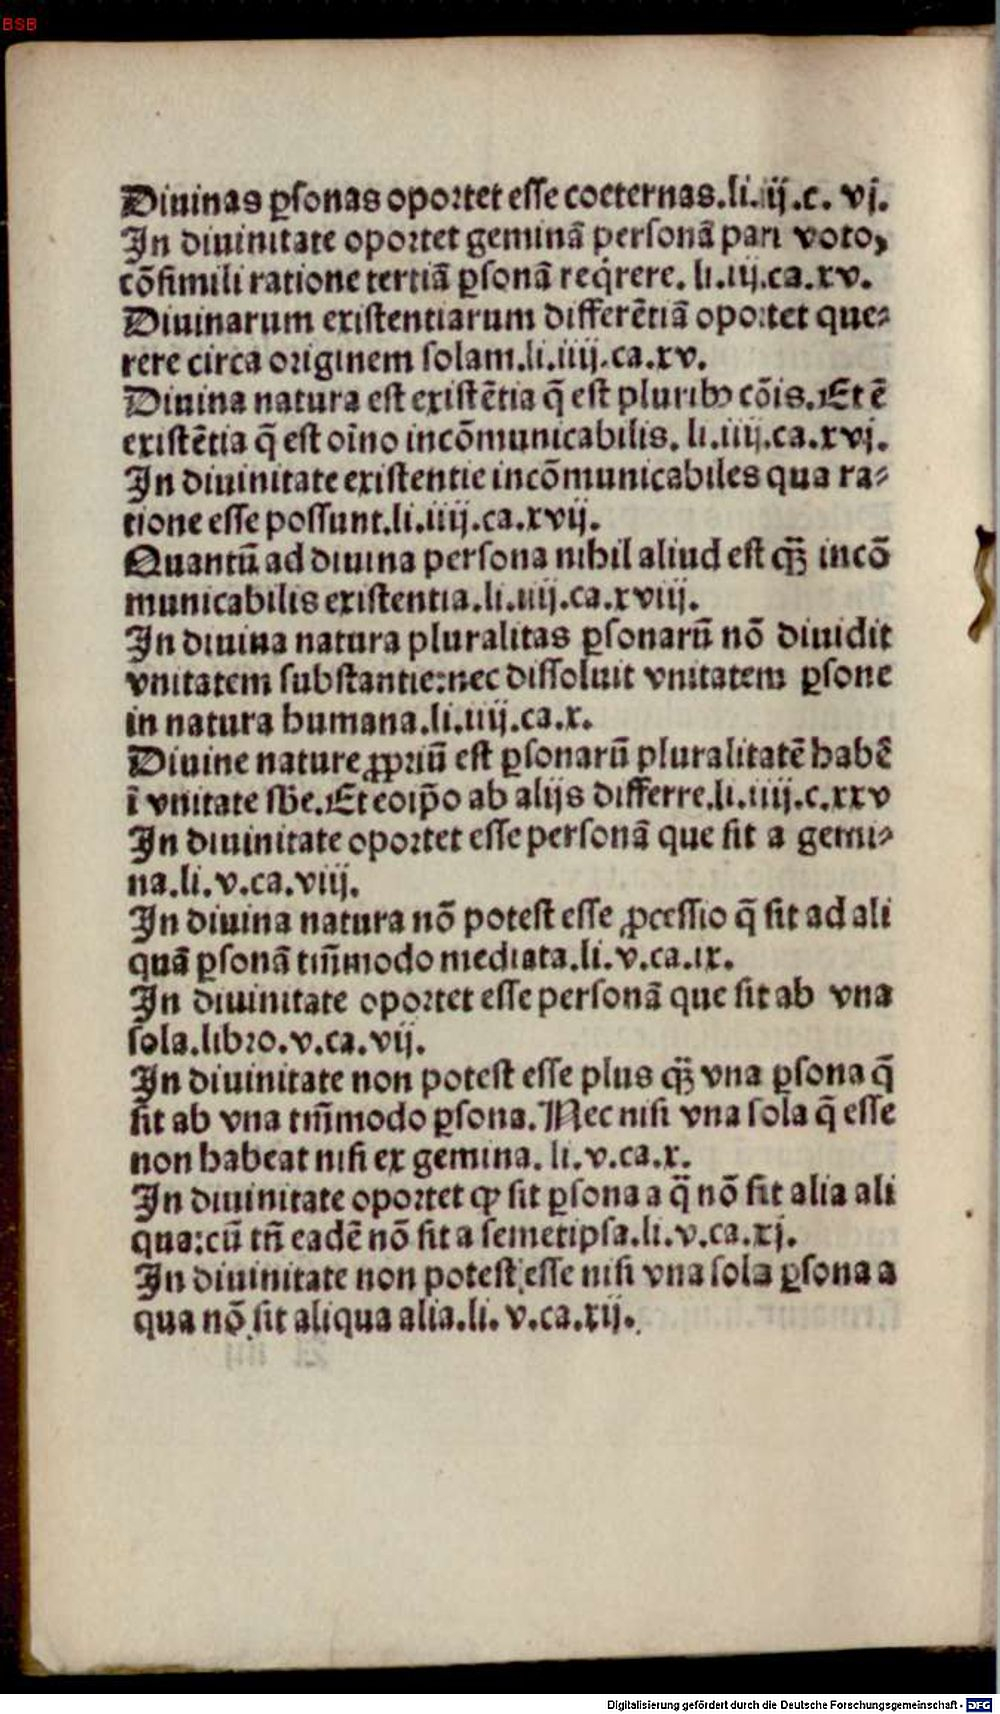 BSB
Diuinas ꝑsonas oportet esse coeternas.li.iij.c. vj.
In diuinitate oportet geminā personā pari voto,
cōsimili ratione tertiā ꝑsonā reqͥrere. li.iij.ca.xv.
Diuinarum existentiarum differētiā oportet que⸗
rere circa originem solam.li.iiij.ca.xv.
Diuina natura est existētia q̄ est pluribꝰ cōis.Et ē
existētia q̄ est oīno incōmunicabilis. li.iiij.ca.xvj.
In diuinitate existentie incōmunicabiles qua ra⸗
tione esse possunt.li.iiij.ca.xvij.
Quantū ad diuina persona nihil aliud est qͣꝫ incō
municabilis existentia.li.iiij.ca.xviij.
In diuina natura pluralitas ꝑsonarū nō diuidit
vnitatem substantie:nec dissoluit vnitatem ꝑsone
in natura humana.li.iiij.ca.x.
Diuine nature ꝓpriū est ꝑsonarū pluralitatē habē
ī vnitate sb̄e.Et eoip̄o ab alijs differre.li.iiij.c.xxv
In diuinitate oportet esse personā que sit a gemi⸗
na.li.v.ca.viij.
In diuina natura nō potest esse ꝓcessio q̄ sit ad ali
quā ꝑsonā tm̄modo mediata.li.v.ca.ix.
In diuinitate oportet esse personā que sit ab vna
sola.libro.v.ca.vij.
In diuinitate non potest esse plus qͣꝫ vna ꝑsona q̄
sit ab vna tm̄modo ꝑsona.Nec nisi vna sola q̄ esse
non habeat nisi ex gemina. li.v.ca.x.
In diuinitate oportet ꝙ sit ꝑsona a q̄ nō sit alia ali
qua:cū tn̄ eadē nō sit a semetipsa.li.v.ca.xj.
In diuinitate non potest esse nisi vna sola ꝑsona a
qua nō sit aliqua alia.li. v.ca.xij.
Digitalisierung gefördert durch die Deutsche Forschungsgemeinschaft - DFG